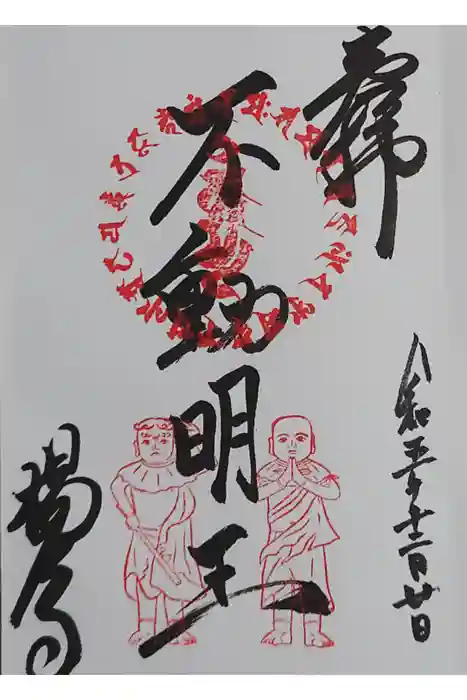 奉拝
令和五年十二月廿日
不動明王
楊谷寺